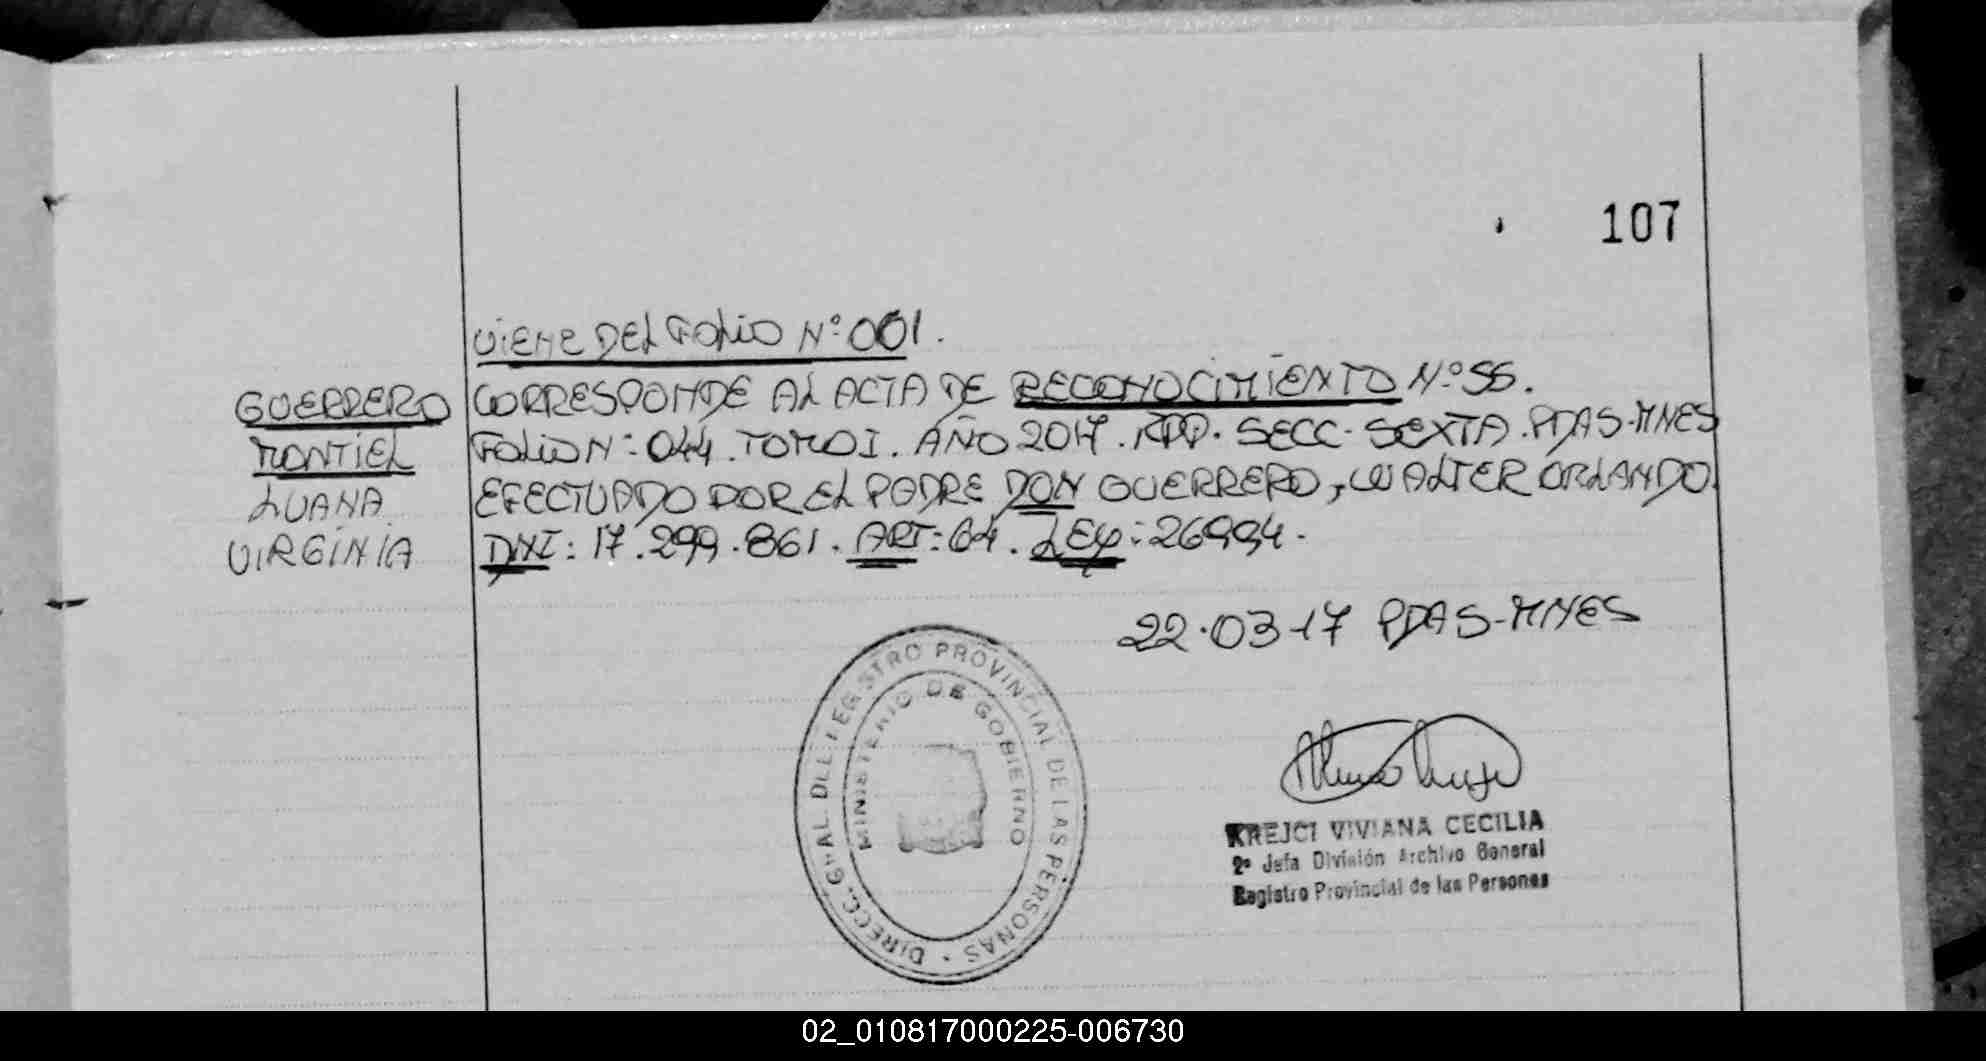 107
VIENE DEL FOLIO N°001.
GUERRERO
MONTIEL
LUANA
VIRGINIA
CORRESPONDE AL ACTA DE RECONOCIMIENTO N°55.
FOLIO N: 044. TOMO I. AÑO 2017. RPP. SECC. SEXTA. PDAS-MNES
EFECTUADO POR EL PADRE DON GUERRERO, WALTER ORLANDO.
DNI: 17.299.861. ART: 64. LEY: 26994.
22.03-17 PDAS-MNES
DIRECC. GRAL. DEL REGISTRO PROVINCIAL DE LAS PERSONAS
MINISTERIO DE GOBIERNO
KREJCI VIVIANA CECILIA
2° Jefa División Archivo General
Registro Provincial de las Personas
02_010817000225-006730